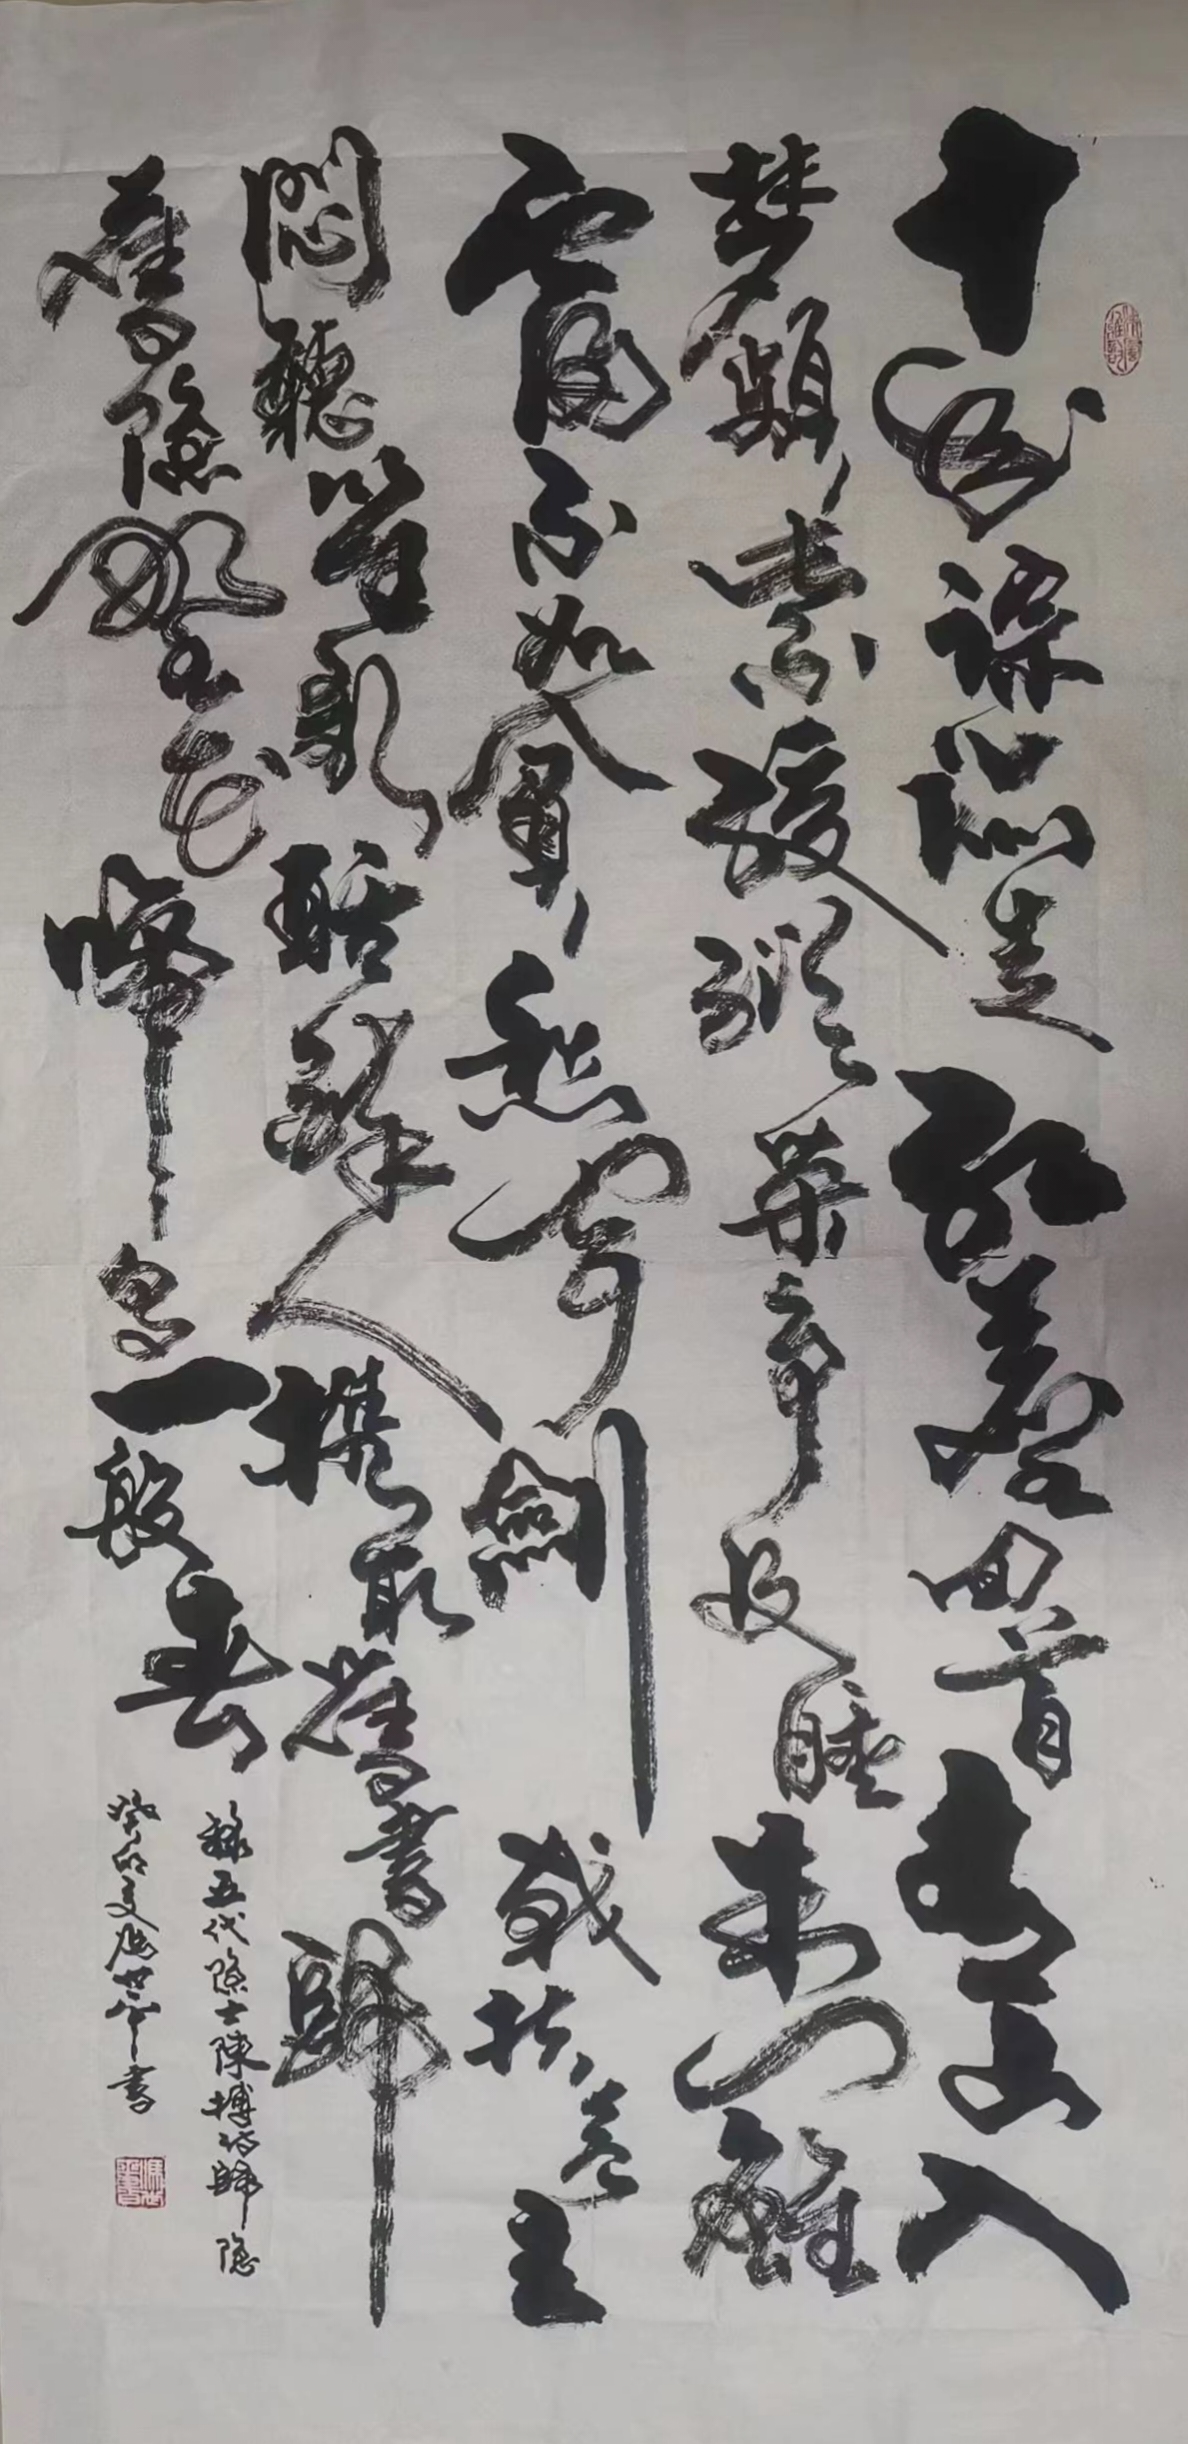 十年蹤跡走紅塵回首青山入
夢頻紫綬縱榮爭及睡朱門雖
富不如貧愁聞劍戟扶危主
悶聽笙歌聒醉人攜取舊書歸
舊隱野花啼鳥一般春
錄五代隱士陳摶詩歸隱
癸卯夏馮世平書